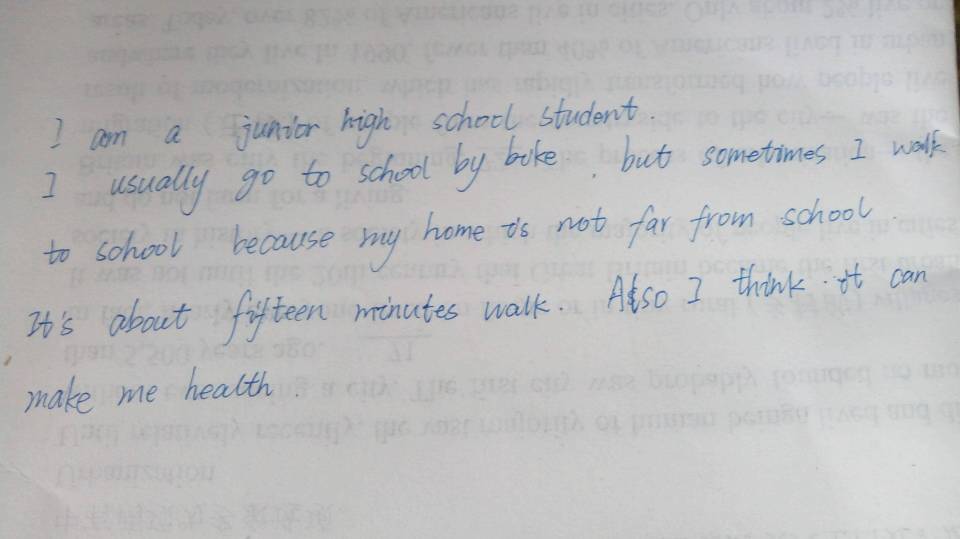 I am a junior high school student.
I usually go to school by bike, but sometimes I walk
to school because my home is not far from school.
It's about fifteen minutes walk. Also I think it can
make me health.